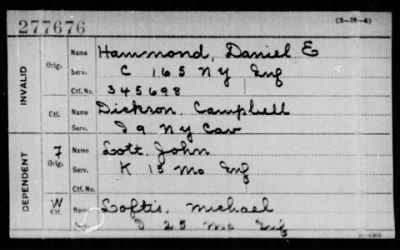 277676
(3-18-4)
INVALID
Orig.
Name Hammond, Daniel E
Serv. C 165 NY Inf
Ctf. No. 345698
Ctf.
Name Dickson, Campbell
Serv. I 9 NY Cav
DEPENDENT
F
Orig.
Name Lott, John
Serv. K 15 Mo Inf
Ctf. No.
W
Ctf.
Name Loftis, Michael
I 25 Mo Inf